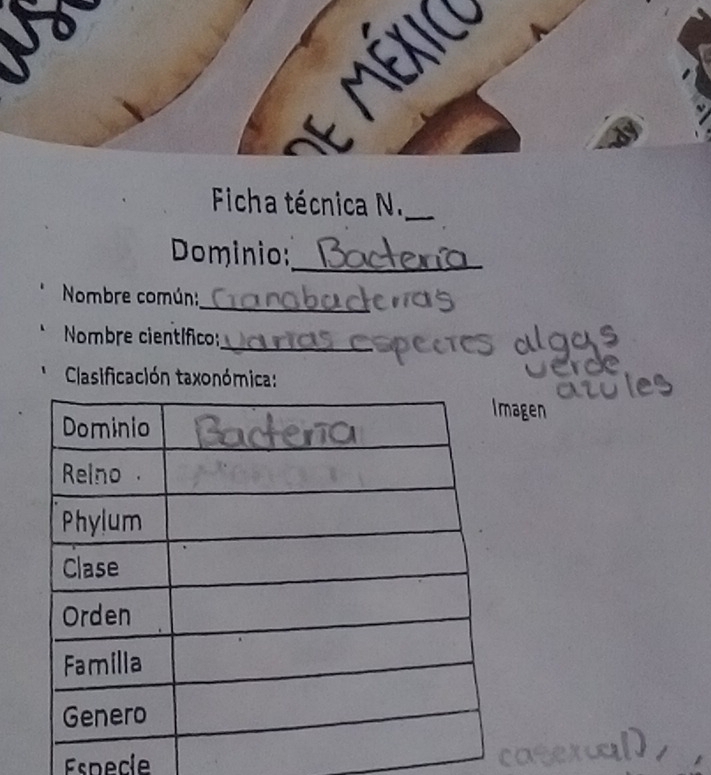 DE MÉXICO
Ficha técnica N.__
Dominio: Bacteria
Nombre común: Cianobacterias
Nombre científico: varias especies algas
verde
azules
Clasificación taxonómica:
Imagen
Dominio Bacteria
Reino
Phylum
Clase
Orden
Familia
Genero
Especie
(asexual),